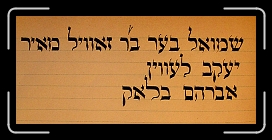 שמואל בער בר זאוויל מאיר
יעקב לעווין
אברהם בלאק